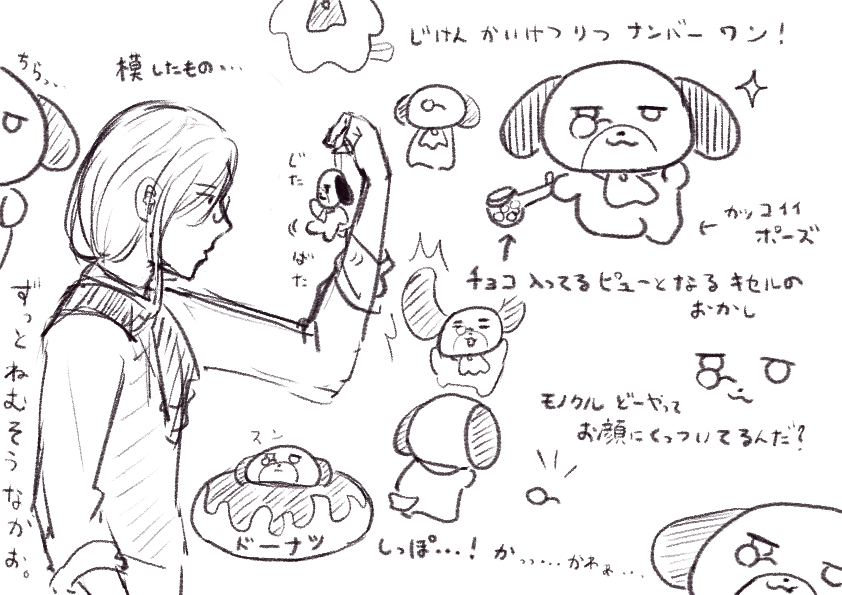 じけん かいけつ りつ ナンバー ワン!
ちらっ…
模したもの…
じた
ばた
カッコイイ
ポーズ
チョコ 入ってる ピューとなる キセルの
おかし
ずっとねむそうなかお。
モノクル どーやって
お顔にくっついてるんだ?
スン
ドーナツ
しっぽ…! かっっ…かわぁ…